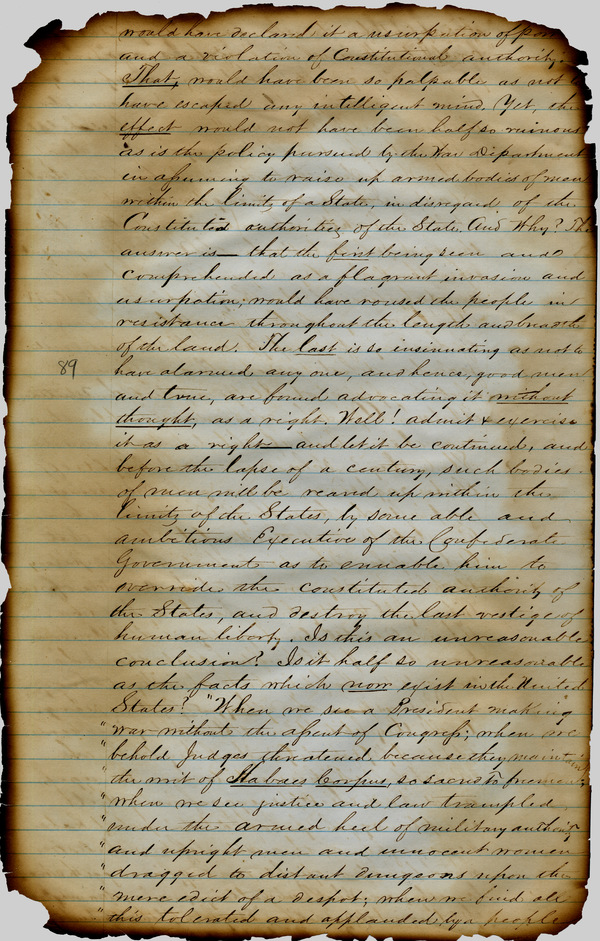 would have declared it a usurpation of pow
and a violation of Constitutional authority.
That, would have been so palpable as not
have escaped any intelligent mind. Yet, the
effect would not have been half so ruinous
as is the policy pursued by the War Department
in assuming to raise up armed bodies of men
within the limits of a State, in disregard of the
Constituted authorities of the State. And Why? The
answer is — that the first being seen and
comprehended as a flagrant invasion and
usurpation; would have roused the people in
resistance throughout the length and breadth
of the land. The last is so insinuating as not to
89
have alarmed any one, and hence, good men
and true, are found advocating it without
thought, as a right. Well! admit & exercise
it as a right — and let it be continued, and
before the lapse of a century, such bodies
of men will be reared up within the
limits of the States, by some able and
ambitious Executive of the Confederate
Government as to enuable him to
override the constituted authority of
the States, and destroy the last vestige of
human liberty. Is this an unreasonable
conclusion? Is it half so unreasonable
as the facts which now exist in the United
States? "When we see a President making
"war without the assent of Congress; when we
"behold Judges threatened because they maintain
"the writ of Habaes Corpus, so sacred to freemen;
"when we see justice and law trampled
"under the armed heel of military authority
"and upright men and innocent women
"dragged to distant dungeons upon the
"mere edict of a despot; when we find all
"this tolerated and applauded by a people